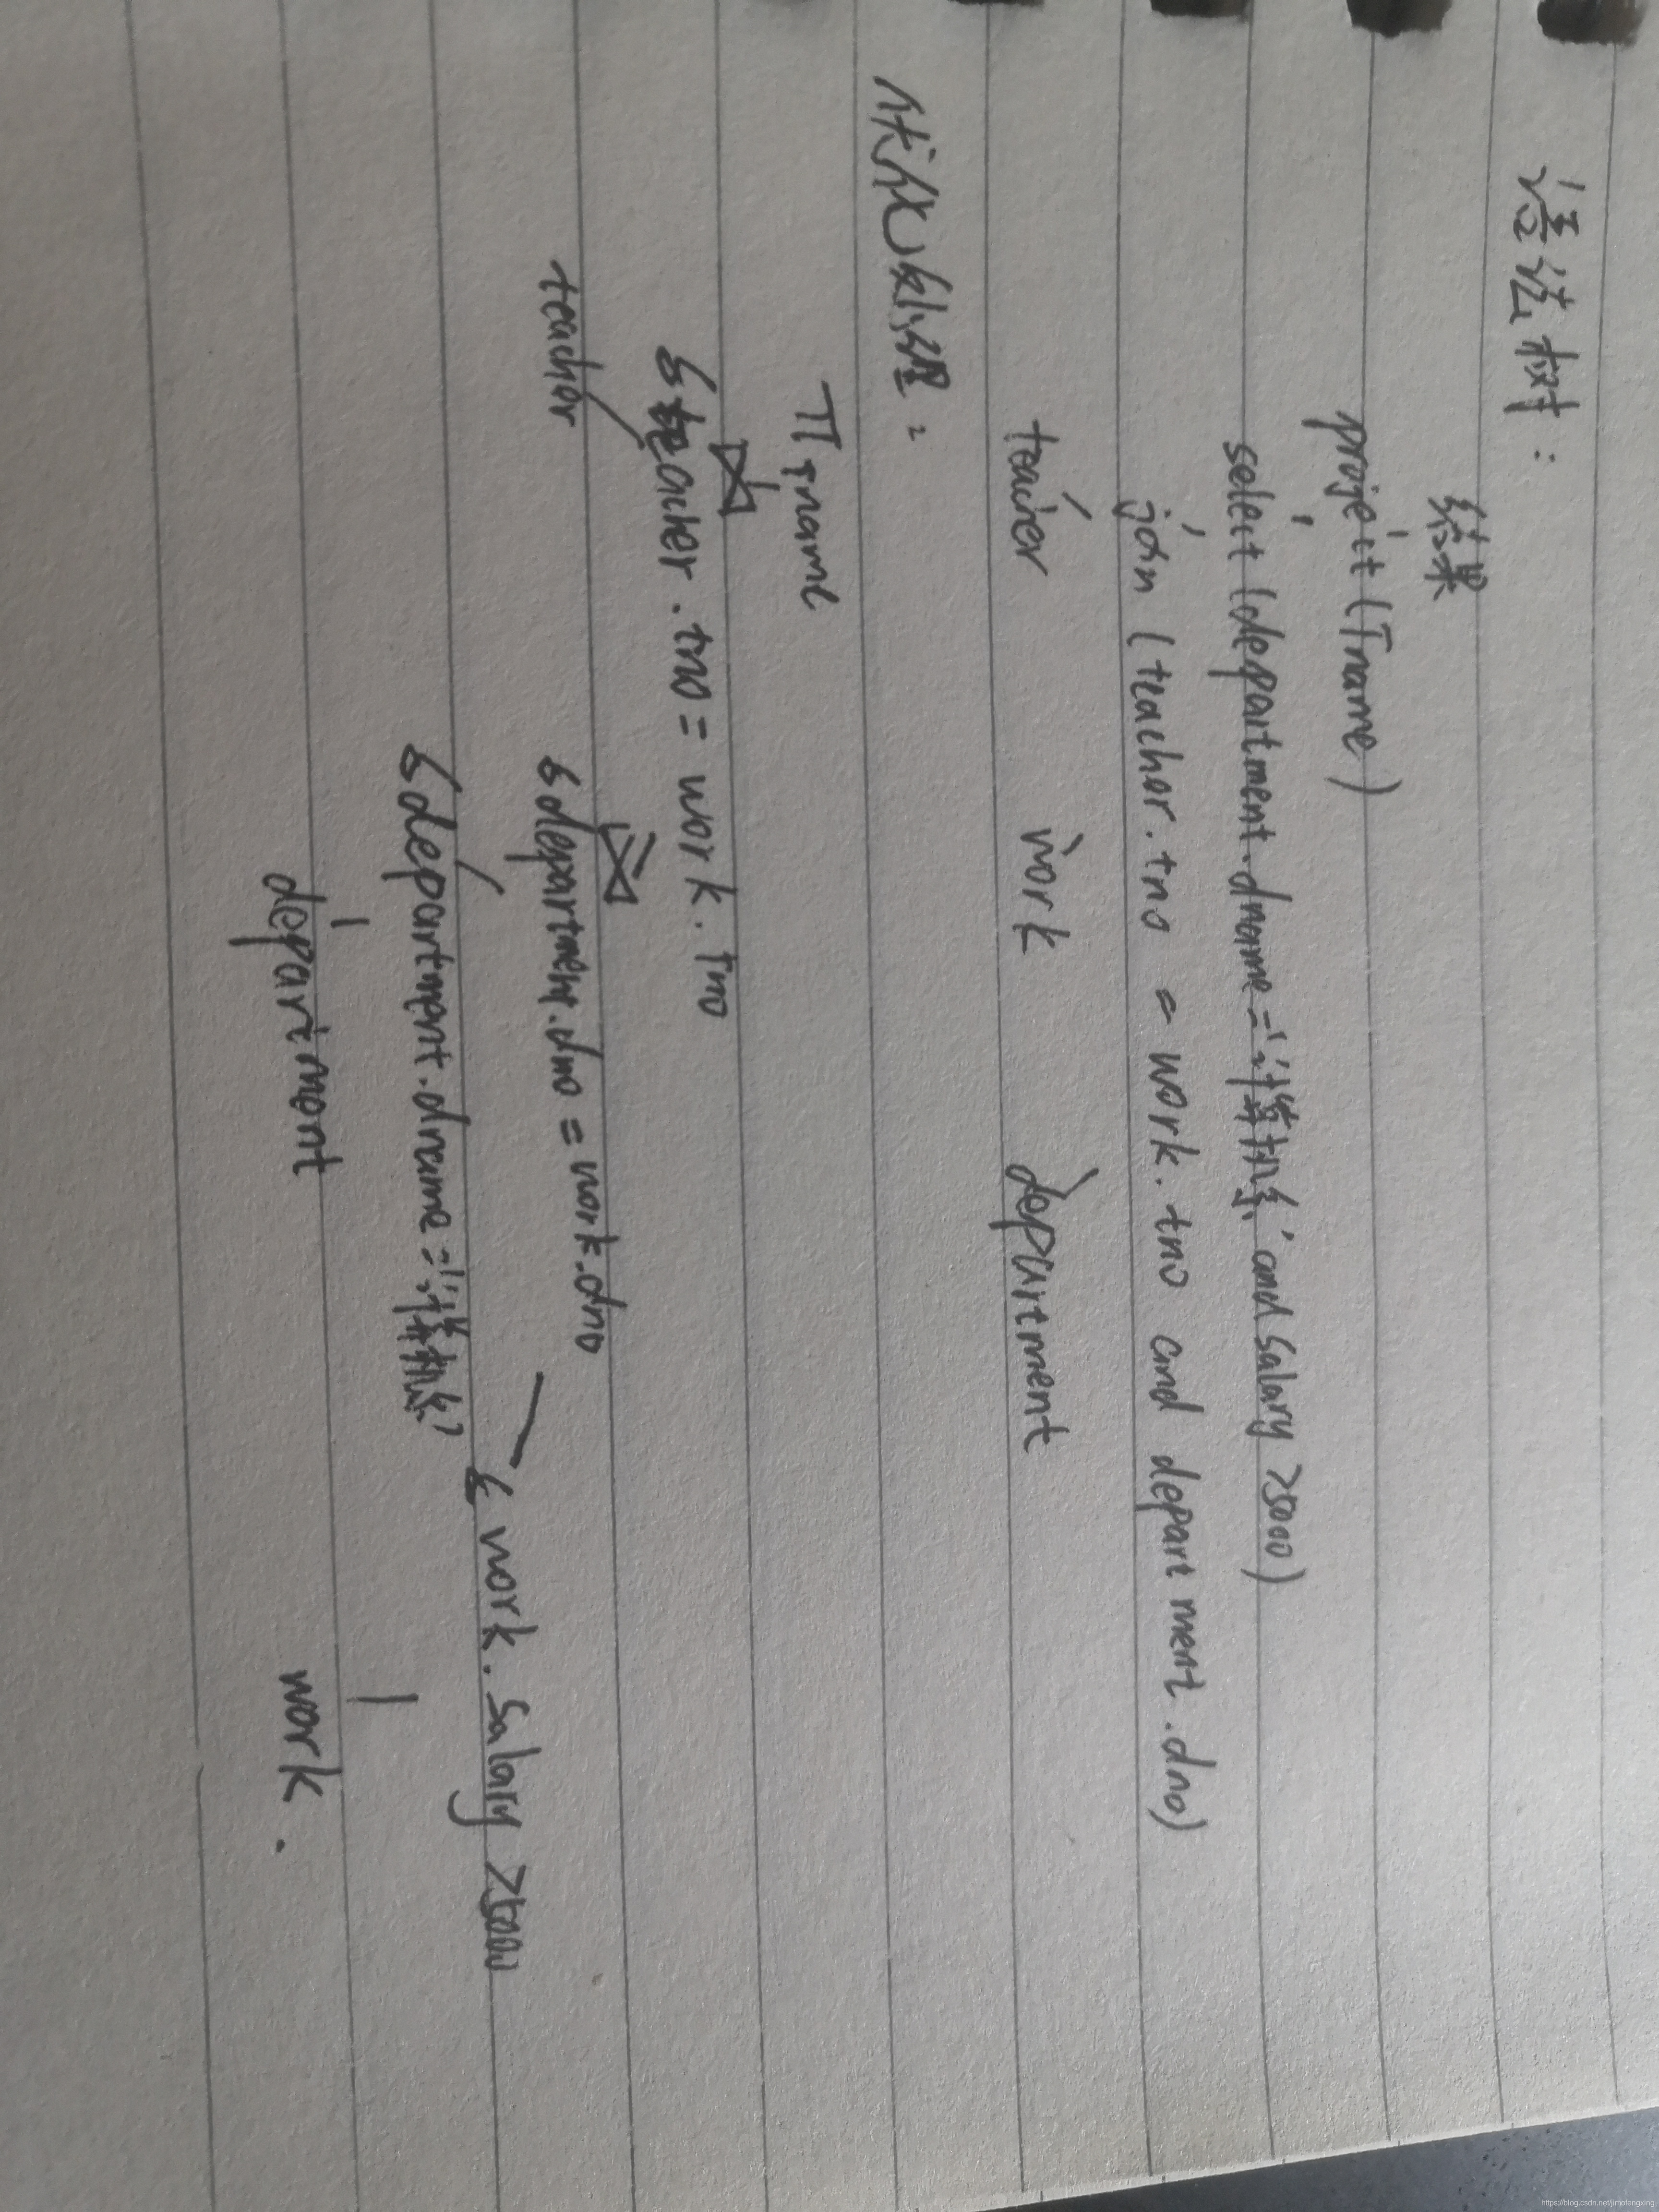 语法树：
结果
project (Tname)
select (department.dname = '计算机系' and salary >5000)
join (teacher.tno = work.tno and department.dno)
teacher work department
优化处理：
π Tname
⋈
σ teacher.tno = work.tno
teacher ⋈
σ department.dno = work.dno
σ work.salary >5000
σ department.dname = '计算机系'
department work.
https://blog.csdn.net/jimofengxing